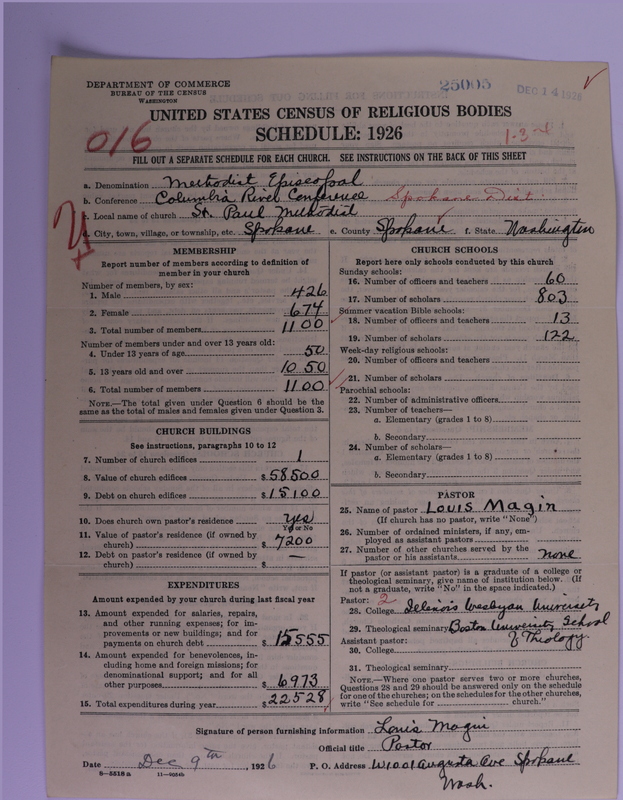 DEPARTMENT OF COMMERCE
BUREAU OF THE CENSUS
WASHINGTON
25005
DEC 14 1926
UNITED STATES CENSUS OF RELIGIOUS BODIES
SCHEDULE: 1926
016
1-3-
FILL OUT A SEPARATE SCHEDULE FOR EACH CHURCH. SEE INSTRUCTIONS ON THE BACK OF THIS SHEET
a. Denomination Methodist Episcopal
b. Conference Columbia River Conference Spokane Dist.
c. Local name of church St. Paul Methodist
d. City, town, village, or township, etc. Spokane e. County Spokane f. State Washington
MEMBERSHIP
Report number of members according to definition of
member in your church
Number of members, by sex:
1. Male 426
2. Female 674
3. Total number of members 1100
Number of members under and over 13 years old:
4. Under 13 years of age 50
5. 13 years old and over 1050
6. Total number of members 1100
NOTE.—The total given under Question 6 should be
same as the total of males and females given under Question 3.
CHURCH BUILDINGS
See instructions, paragraphs 10 to 12
7. Number of church edifices 1
8. Value of church edifices $ 58500
9. Debt on church edifices $ 15100
10. Does church own pastor's residence yes
Yes or No
11. Value of pastor's residence (if owned by
church) $ 7200
12. Debt on pastor's residence (if owned by
church) $ —
EXPENDITURES
Amount expended by your church during last fiscal year
13. Amount expended for salaries, repairs,
and other running expenses; for im-
provements or new buildings; and for
payments on church debt $ 15555
14. Amount expended for benevolences, in-
cluding home and foreign missions; for
denominational support; and for all
other purposes $ 6973
15. Total expenditures during year $ 22528
CHURCH SCHOOLS
Report here only schools conducted by this church
Sunday schools:
16. Number of officers and teachers 60
17. Number of scholars 803
Summer vacation Bible schools:
18. Number of officers and teachers 13
19. Number of scholars 122
Week-day religious schools:
20. Number of officers and teachers
21. Number of scholars
Parochial schools:
22. Number of administrative officers
23. Number of teachers—
a. Elementary (grades 1 to 8)
b. Secondary
24. Number of scholars—
a. Elementary (grades 1 to 8)
b. Secondary
PASTOR
25. Name of pastor Louis Magin
(If church has no pastor, write "None")
26. Number of ordained ministers, if any, em-
ployed as assistant pastors
27. Number of other churches served by the
pastor or his assistants none
If pastor (or assistant pastor) is a graduate of a college or
theological seminary, give name of institution below. (If
not a graduate, write "No" in the space indicated.)
Pastor: 2
28. College Illinois Wesleyan University
29. Theological seminary Boston University School
of Theology.
Assistant pastor:
30. College
31. Theological seminary
NOTE.—Where one pastor serves two or more churches,
Questions 28 and 29 should be answered only on the schedule
for one of the churches; on the schedules for the other churches,
write "See schedule for church."
Signature of person furnishing information Louis Magin
Official title Pastor
Date Dec 9th, 1926 P. O. Address W1001 Augusta Ave Spokane
Wash.
8—5518 a 11—9054b